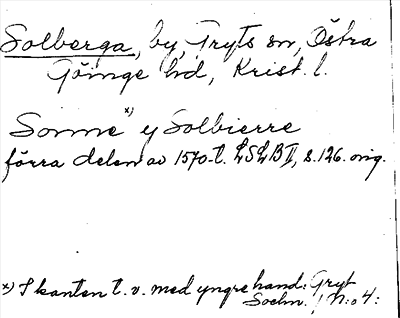 Solberga, by, Gryts sn, Östra
Göinge hd, Krist. l.
Somme x) y Solbierre
förra delen av 1570-t. LSLB II, s. 126. orig.
x) I kanten t. v. med yngre hand: Gryt
Sochn. / N:o 4: